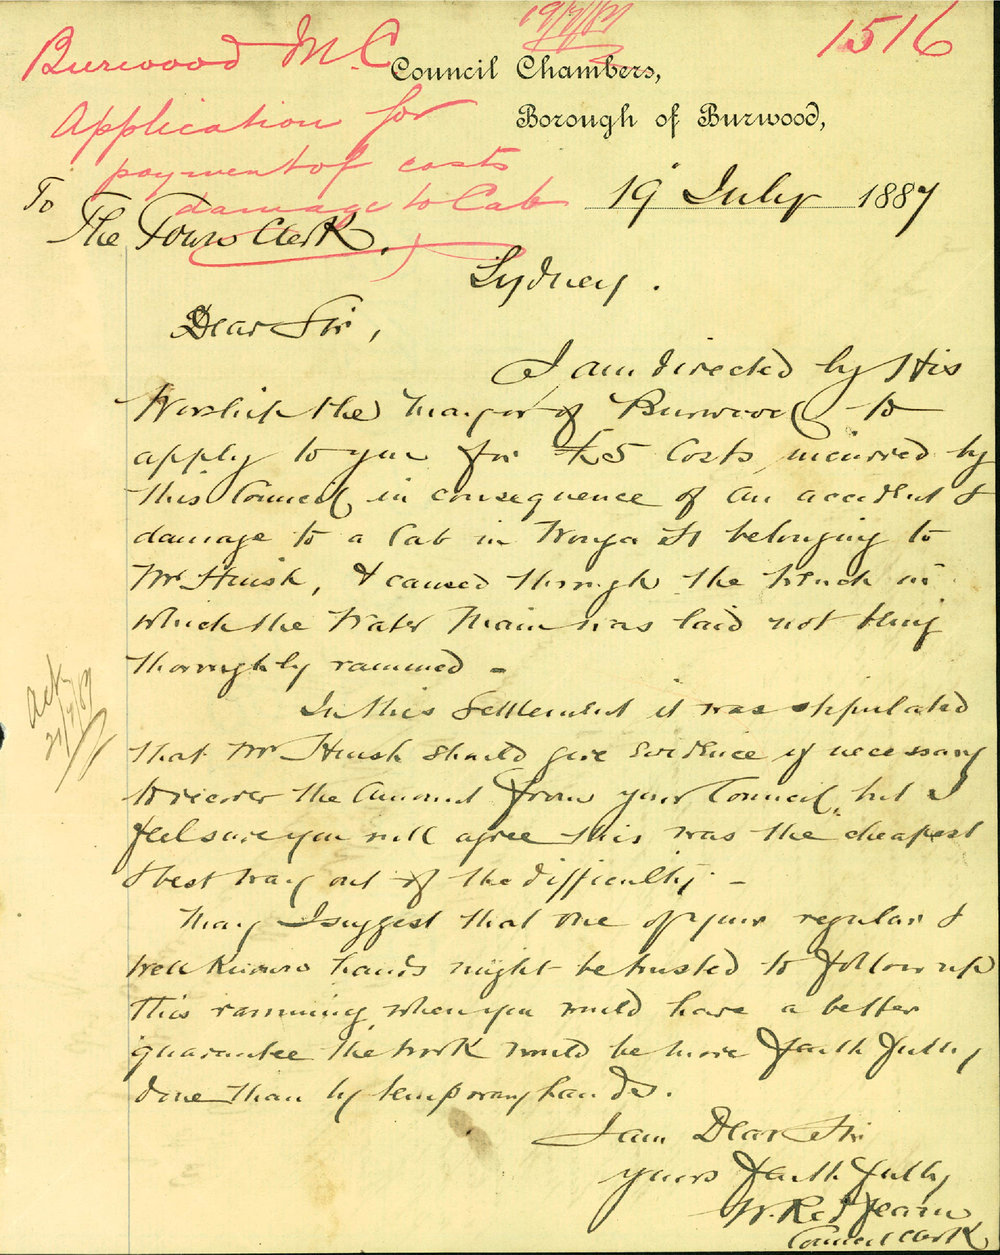 19/7/87
1516
Burwood M.C.
Council Chambers,
Application for
Borough of Burwood,
payment of costs
damage to Cab
19 July 1887
To
The Town Clerk,
Sydney.
Dear Sir,
I am directed by His
Worship the Mayor of Burwood to
apply to you for £5 Costs incurred by
this Council in consequence of an accident &
damage to a Cab in Wonga St belonging to
Mr Huish, & caused through the trench in
which the Water Main was laid not being
thoroughly rammed -
In this Settlement it was stipulated
that Mr Huish should give Evidence if necessary
to recover the Amount from your Council, but I
feel sure you will agree this was the cheapest
& best way out of the difficulty -
May I suggest that one of your regular &
well known hands might be trusted to follow up
this ramming, when you would have a better
guarantee the work would be more faithfully
done than by temporary hands.
I am Dear Sir
yours faithfully
W. Redfearn
Council Clerk
Ack
21/7/87